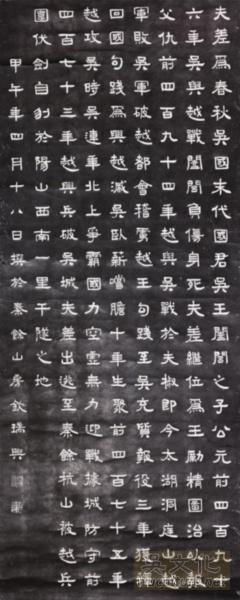 夫差為春秋吳國末代國君吳王闔閭之子公元前四百九十
六年吳與越戰闔閭負傷身死夫差繼位為王勵精圖治以報
父仇前四百九十四年越與吳戰於夫椒即今太湖洞庭山越
軍敗吳軍破越都會稽虜越王句踐至吳充質報役三年獲釋
回國句踐為興越滅吳臥薪嚐膽十年生聚前四百七十五年
越攻吳時吳連年北上爭霸國力空虛無力迎戰據城防守前
四百七十三年越興兵破吳城夫差出逃至秦餘杭山被越兵
圍伏劍自刎於陽山西南一里千隧之地
甲午年四月十八日撰於秦餘山房欽瑞興